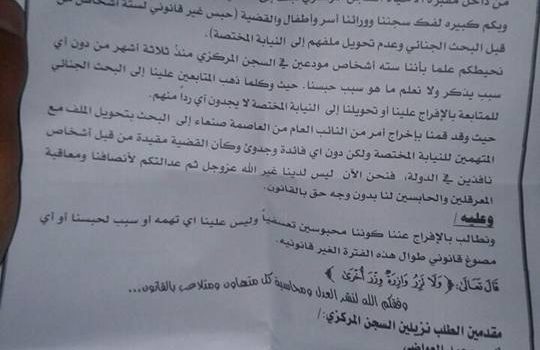 من داخل مقبرة الأحياء السجن المركزي
وبكم كبيره لفك سجننا وورائنا أسر وأطفال والقضية (حبس غير قانوني لستة أشخاص من
قبل البحث الجنائي وعدم تحويل ملفهم إلى النيابة المختصة).
نحيطكم علما بأننا سته أشخاص مودعين في السجن المركزي منذ ثلاثة أشهر من دون أي
سبب يذكر ولا نعلم ما هو سبب حبسنا. حيث وكلما ذهب المتابعين علينا إلى البحث الجنائي
للمتابعة بالإفراج علينا أو تحويلنا إلى النيابة المختصة لا يجدون أي رداً منهم.
حيث وقد قمنا بإخراج أمر من النائب العام من العاصمة صنعاء إلى البحث بتحويل الملف مع
المتهمين للنيابة المختصة ولكن دون اي فائدة وجدوئ وكأن القضية مقيدة من قبل أشخاص
نافذين في الدولة، فنحن الآن ليس لدينا غير الله عزوجل ثم عدالتكم لأنصافنا ومعاقبة
المعرقلين والحابسين لنا بدون وجه حق بالقانون.
وعليه/
ونطالب بالإفراج عننا كوننا محبوسين تعسفياً وليس علينا اي تهمه أو سبب لحبسنا أو أي
مصوغ قانوني طوال هذه الفترة الغير قانونيه.
قال تعالى: ﴿ وَلَا تَزِرُ وَازِرَةٌ وِزْرَ أُخْرَىٰ ﴾
وفقكم الله لنشر العدل ومحاسبة كل متهاون ومتلاعب بالقانون...
مقدمين الطلب نزيلين السجن المركزي:/